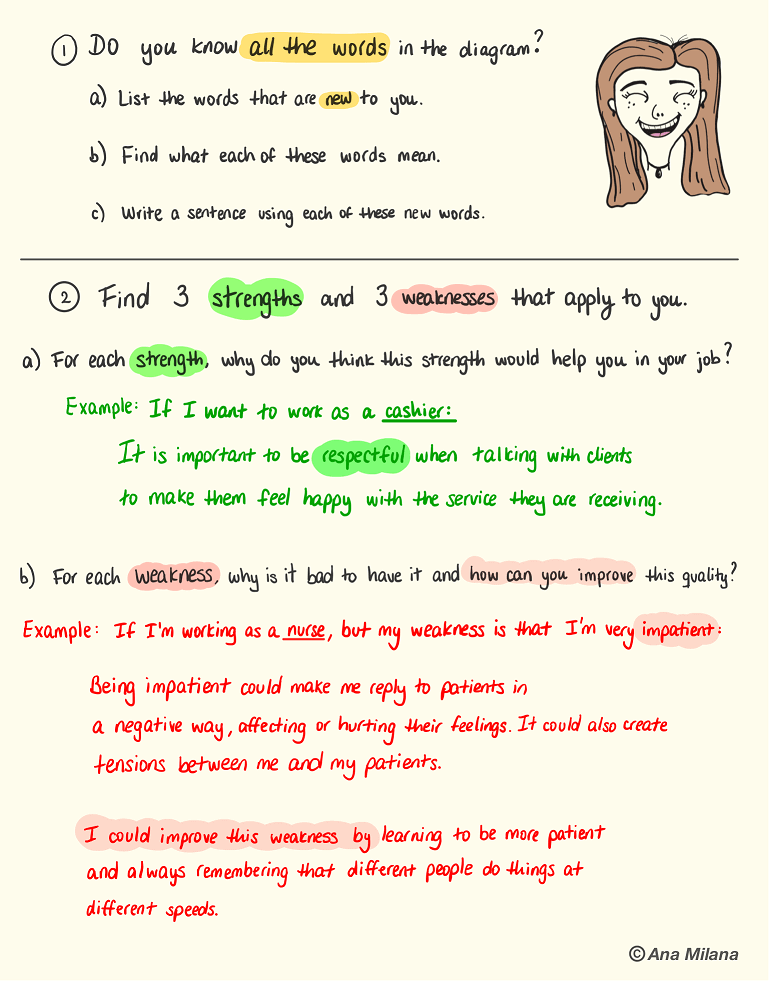 1 Do you know all the words in the diagram?
a) List the words that are new to you.
b) Find what each of these words mean.
c) Write a sentence using each of these new words.
2 Find 3 strengths and 3 weaknesses that apply to you.
a) For each strength, why do you think this strength would help you in your job?
Example: If I want to work as a cashier:
It is important to be respectful when talking with clients
to make them feel happy with the service they are receiving.
b) For each weakness, why is it bad to have it and how can you improve this quality?
Example: If I'm working as a nurse, but my weakness is that I'm very impatient:
Being impatient could make me reply to patients in
a negative way, affecting or hurting their feelings. It could also create
tensions between me and my patients.
I could improve this weakness by learning to be more patient
and always remembering that different people do things at
different speeds.
© Ana Milana